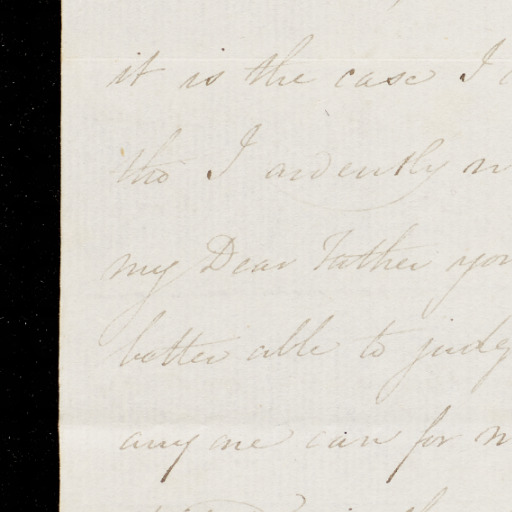 it is the case I
tho I ardently
my Dear Father you
better able to judg
any one can for